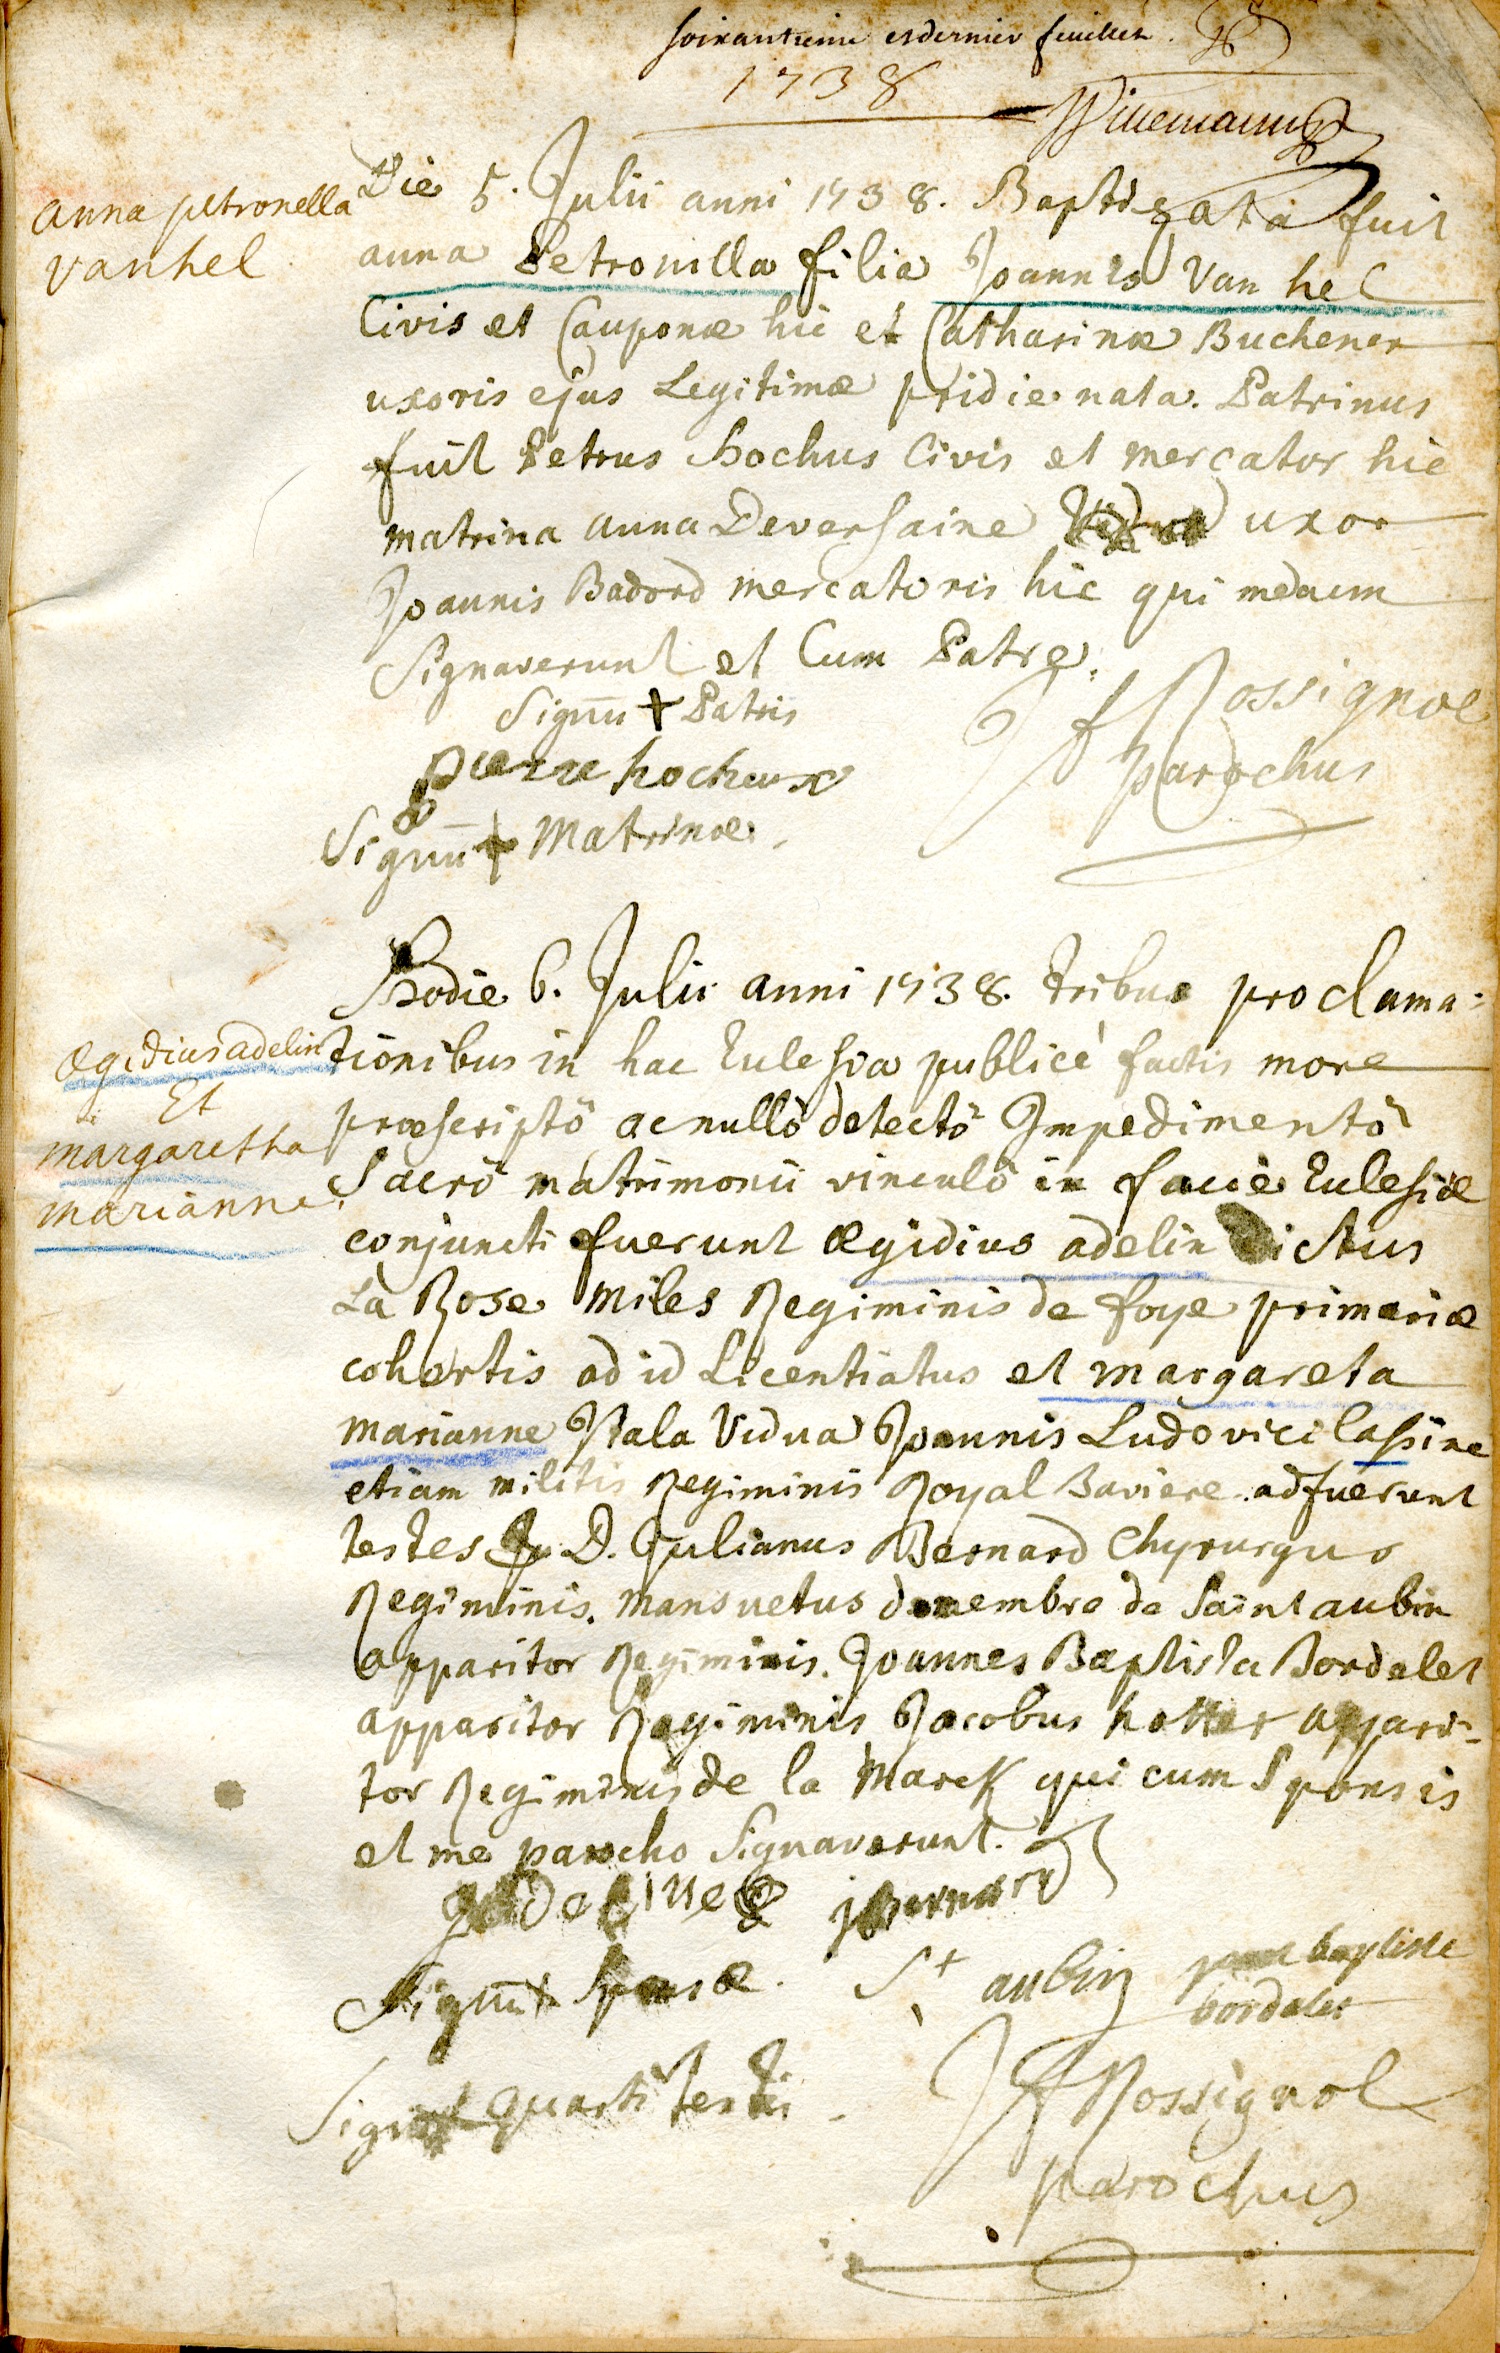 soixantieme et dernier feuillet.
1738
Anna petronella
vanhel
Die 5. Julii anni 1738. Baptizata fuit
anna Petronilla filia Joannis Van hel
Civis et Cauponæ hic et Catharinæ Buchener
uxoris ejus Legitimæ pridie nata. Patrinus
fuit Petrus hochus Civis et mercator hic
matrina anna Deversaine uxor
Joannis Badord mercatoris hic qui mecum
Signaverunt et Cum Patre.
Signū + Patris
J f Rossignol
parochus
pierre hocheux
Signū + Matrinæ.
Hodie 6. Julii anni 1738. tribus proclama-
Ægidius adelin
Et
margaretha
marianne
tionibus in hac Eclesia publicè factis more
præscriptô ac nullô detectô Impedimentô
Sacrô matrimonii vinculô in facie Eclesiæ
conjuncti fuerunt Ægidius adelin dictus
La Rose Miles Regiminis de foye primariæ
cohortis ad id Licentiatus et margareta
marianne Itala Vidua Joannis Ludovici Cassine
etiam militis Regiminis Royal Baviere. adfuerunt
testes D. Julianus Bernard Chyrurgus
Regiminis. mansuetus de Saint aubin
apparitor Regiminis. Joannes Baptista Bordelet
apparitor Regiminis Jacobus appari-
tor Regiminis de la Marck qui cum Sponsis
et me parocho Signaverunt.
jBernard
Signū + Sponsæ.
St aubin
baptiste
bordelet
Sign + quarti testis
J f Rossignol
parochus